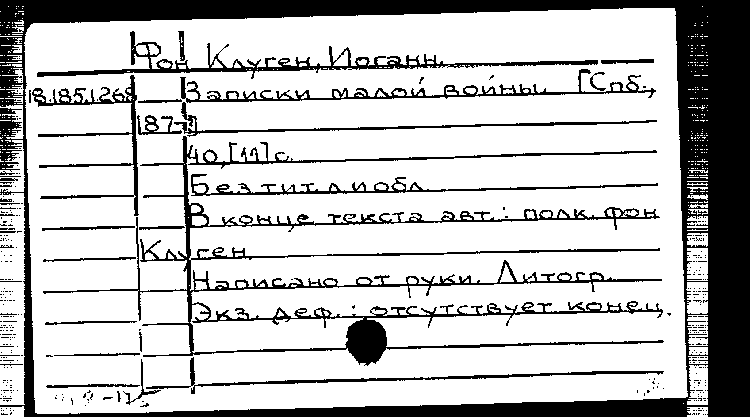 Фон Клуген, Иоганн.
18.185.1.268 Записки малой войны. [Спб.,
187-?]
40,[11] с.
Без тит. л и обл.
В конце текста авт.: полк. фон
Клуген.
Написано от руки. Литогр.
Экз. деф.: отсутствует конец.